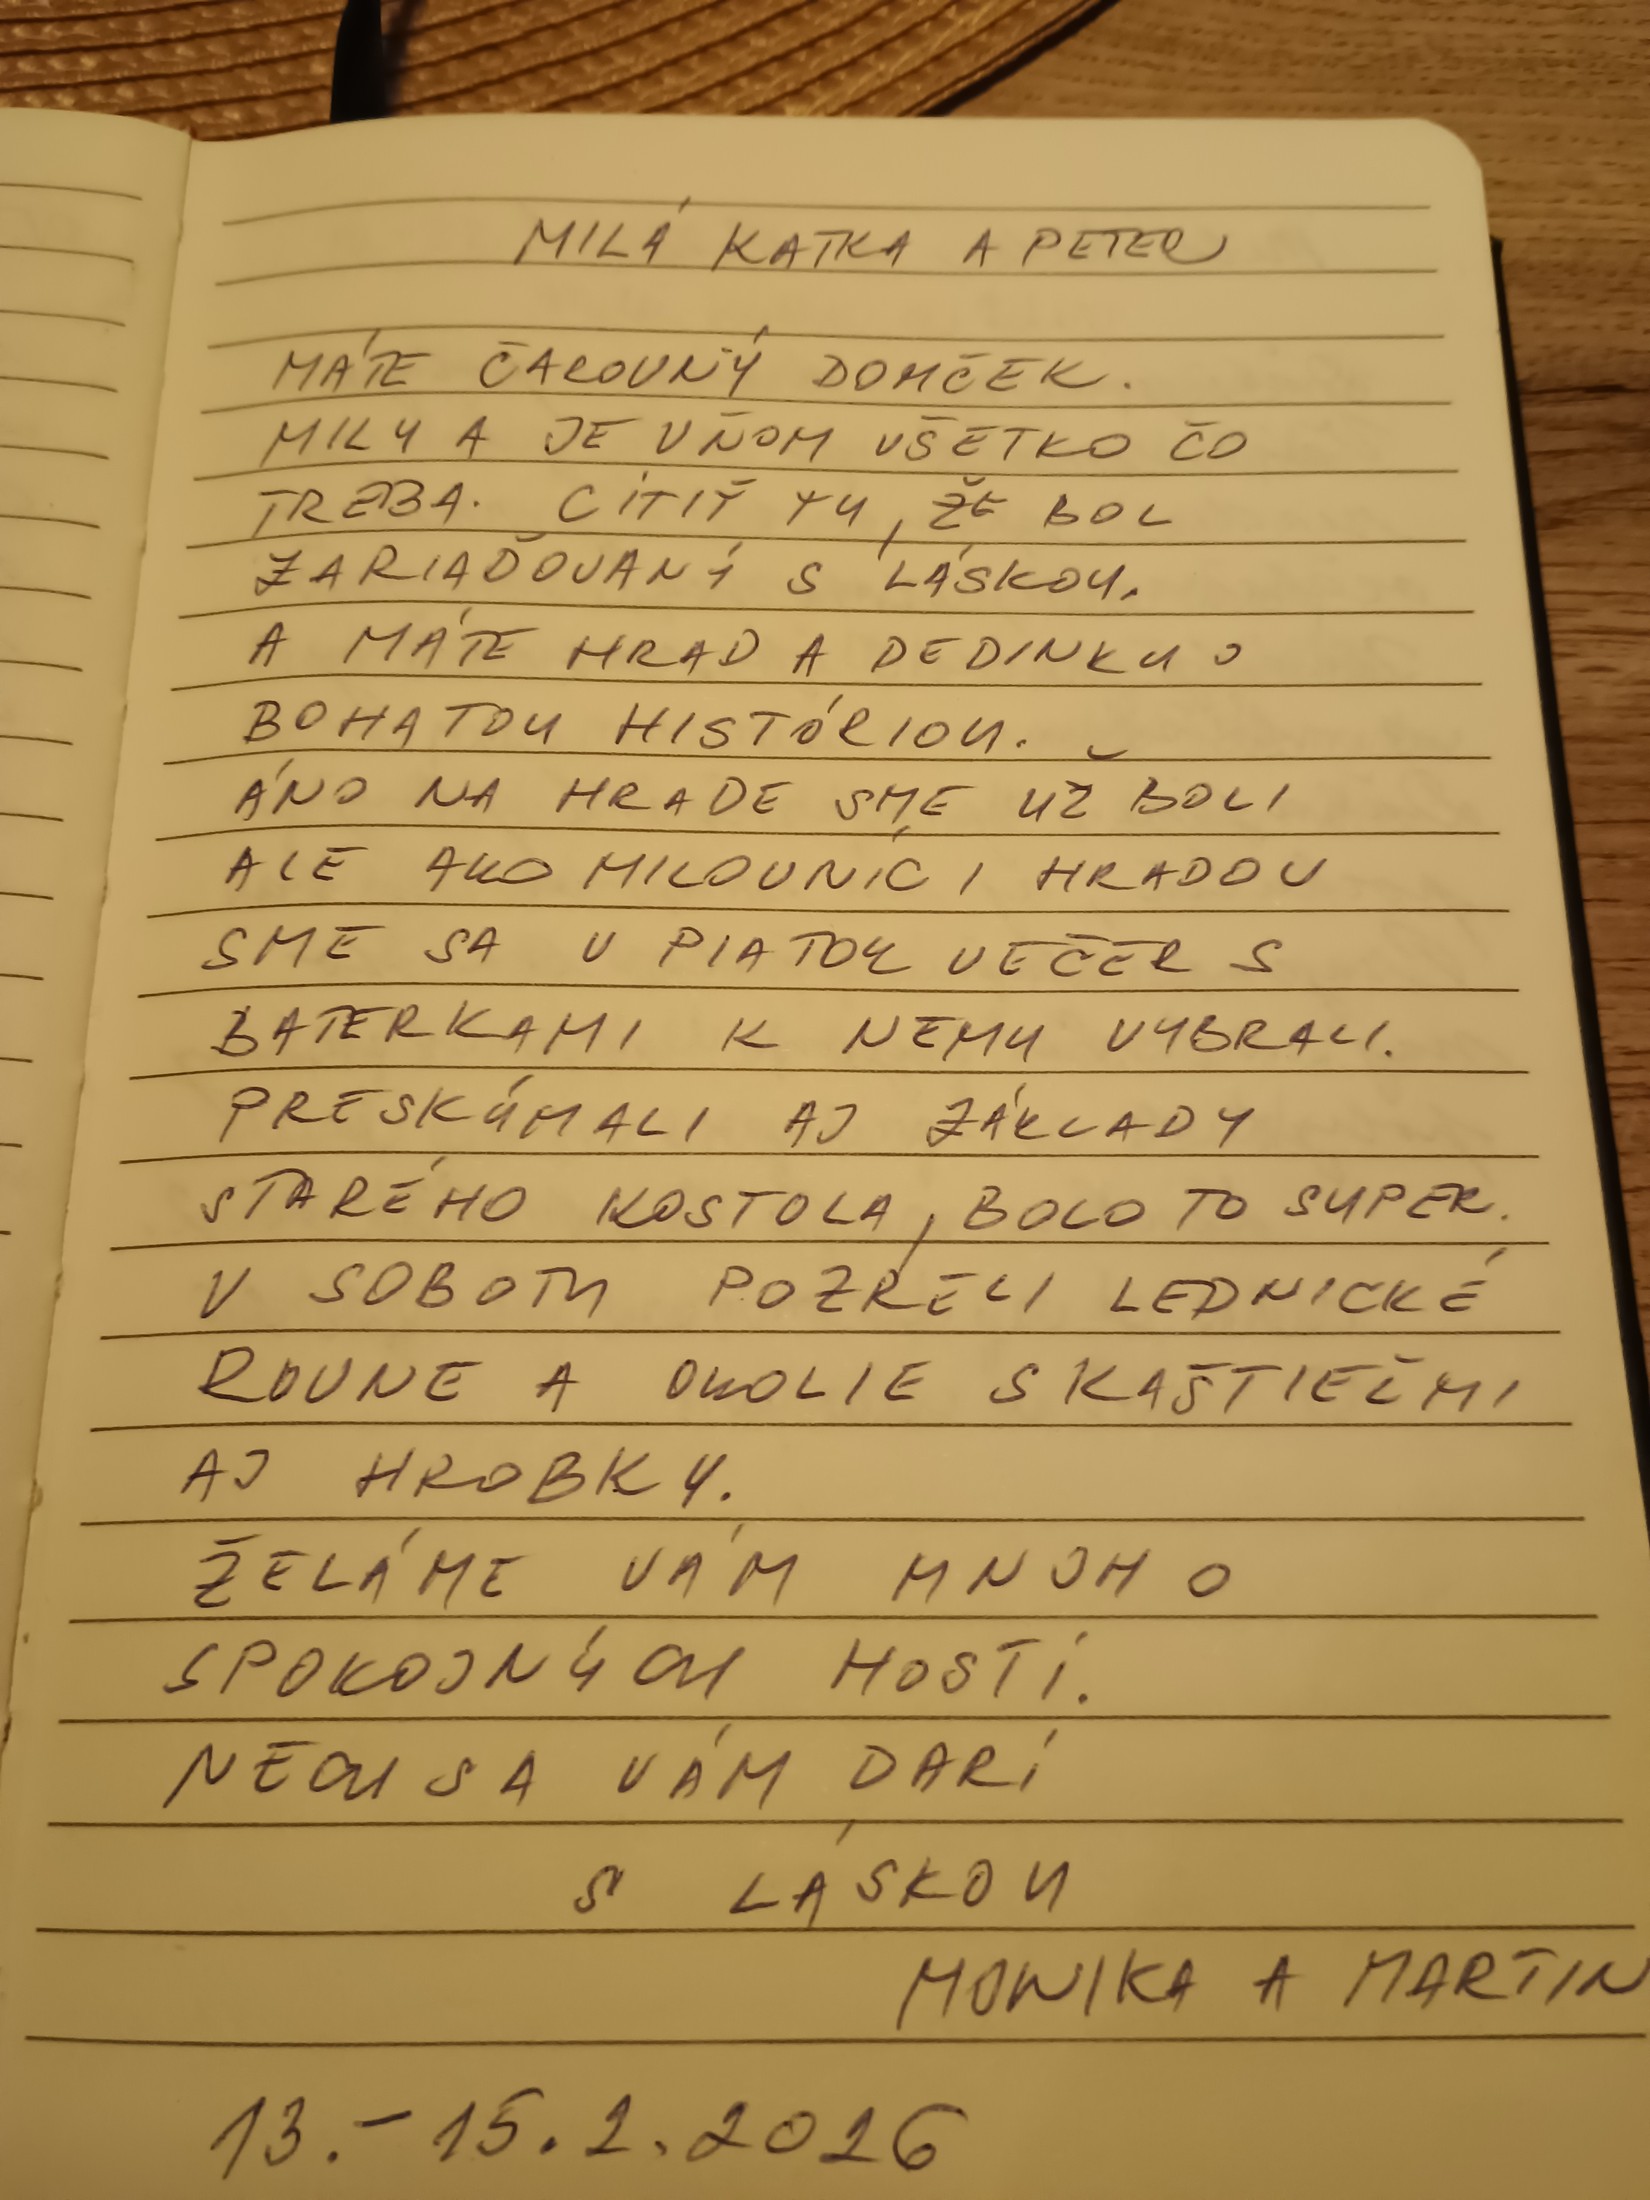 MILÁ KATKA A PETER
MÁTE ČAROVNÝ DOMČEK.
MILY A JE V ŇOM VŠETKO ČO
TREBA. CÍTIŤ TU, ŽE BOL
ZARIAĎOVANÝ S LÁSKOU.
A MÁTE HRAD A DEDINKU S
BOHATOU HISTÓRIOU.
ÁNO NA HRADE SME UŽ BOLI
ALE AKO MILOVNÍCI HRADOV
SME SA V PIATOK VEČER S
BATERKAMI K NEMU VYBRALI.
PRESKÚMALI AJ ZÁKLADY
STARÉHO KOSTOLA, BOLO TO SUPER.
V SOBOTU POZRELI LEDNICKÉ
ROVNE A OKOLIE S KAŠTIEĽMI
AJ HROBKY.
ŽELÁME VÁM MNOHO
SPOKOJNÝCH HOSTÍ.
NECH SA VÁM DARÍ
S LÁSKOU
MONIKA A MARTIN
13.-15.2.2026